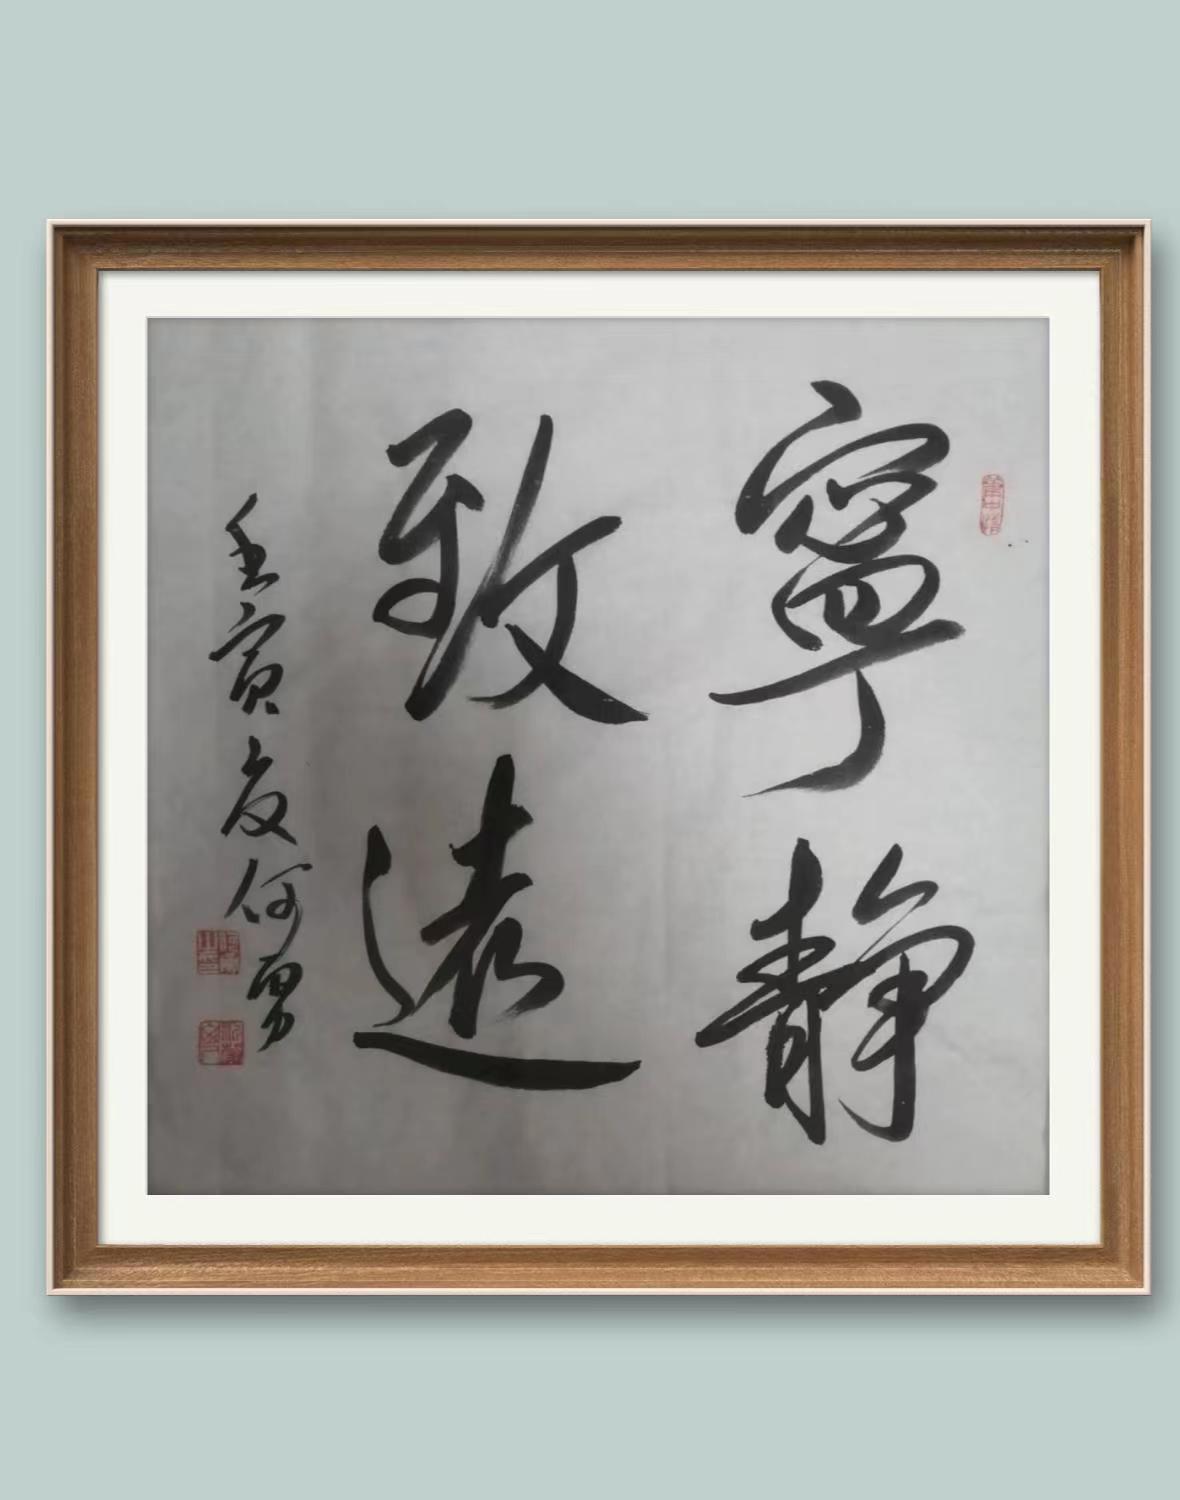 寧静
致遠
壬寅夏何勇